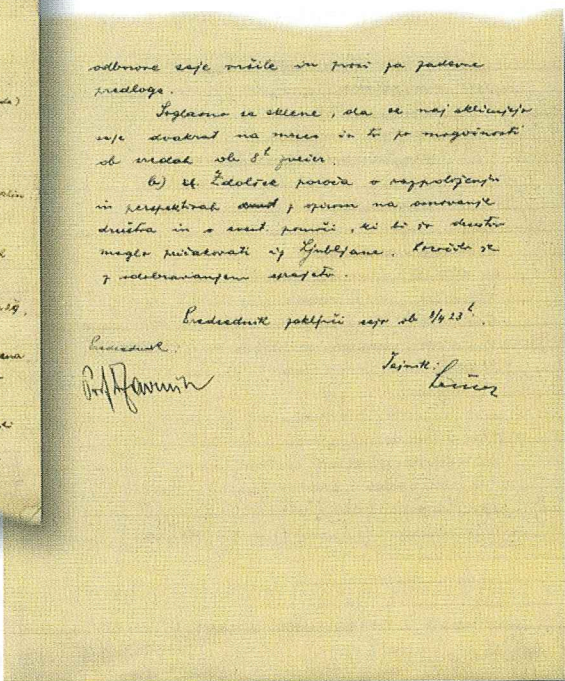 odborove seje vršile in prosi za zadevne
predloge.
Soglasno se sklene, da se naj sklicujejo
seje dvakrat na mesec in to po mogočnosti
ob sredah ob 8h zvečer.
b) Zdolšek poroča o razpoloženju
in perspektivah z ozirom na snovanje
društva in o event. pomoči, ki bi jo društvo
moglo pričakovati iz Ljubljane. Poročilo se
z odobravanjem sprejeto.
Predsednik zaključi sejo ob 1/4 23h.
Predsednik:
Tajnik:
Prof.